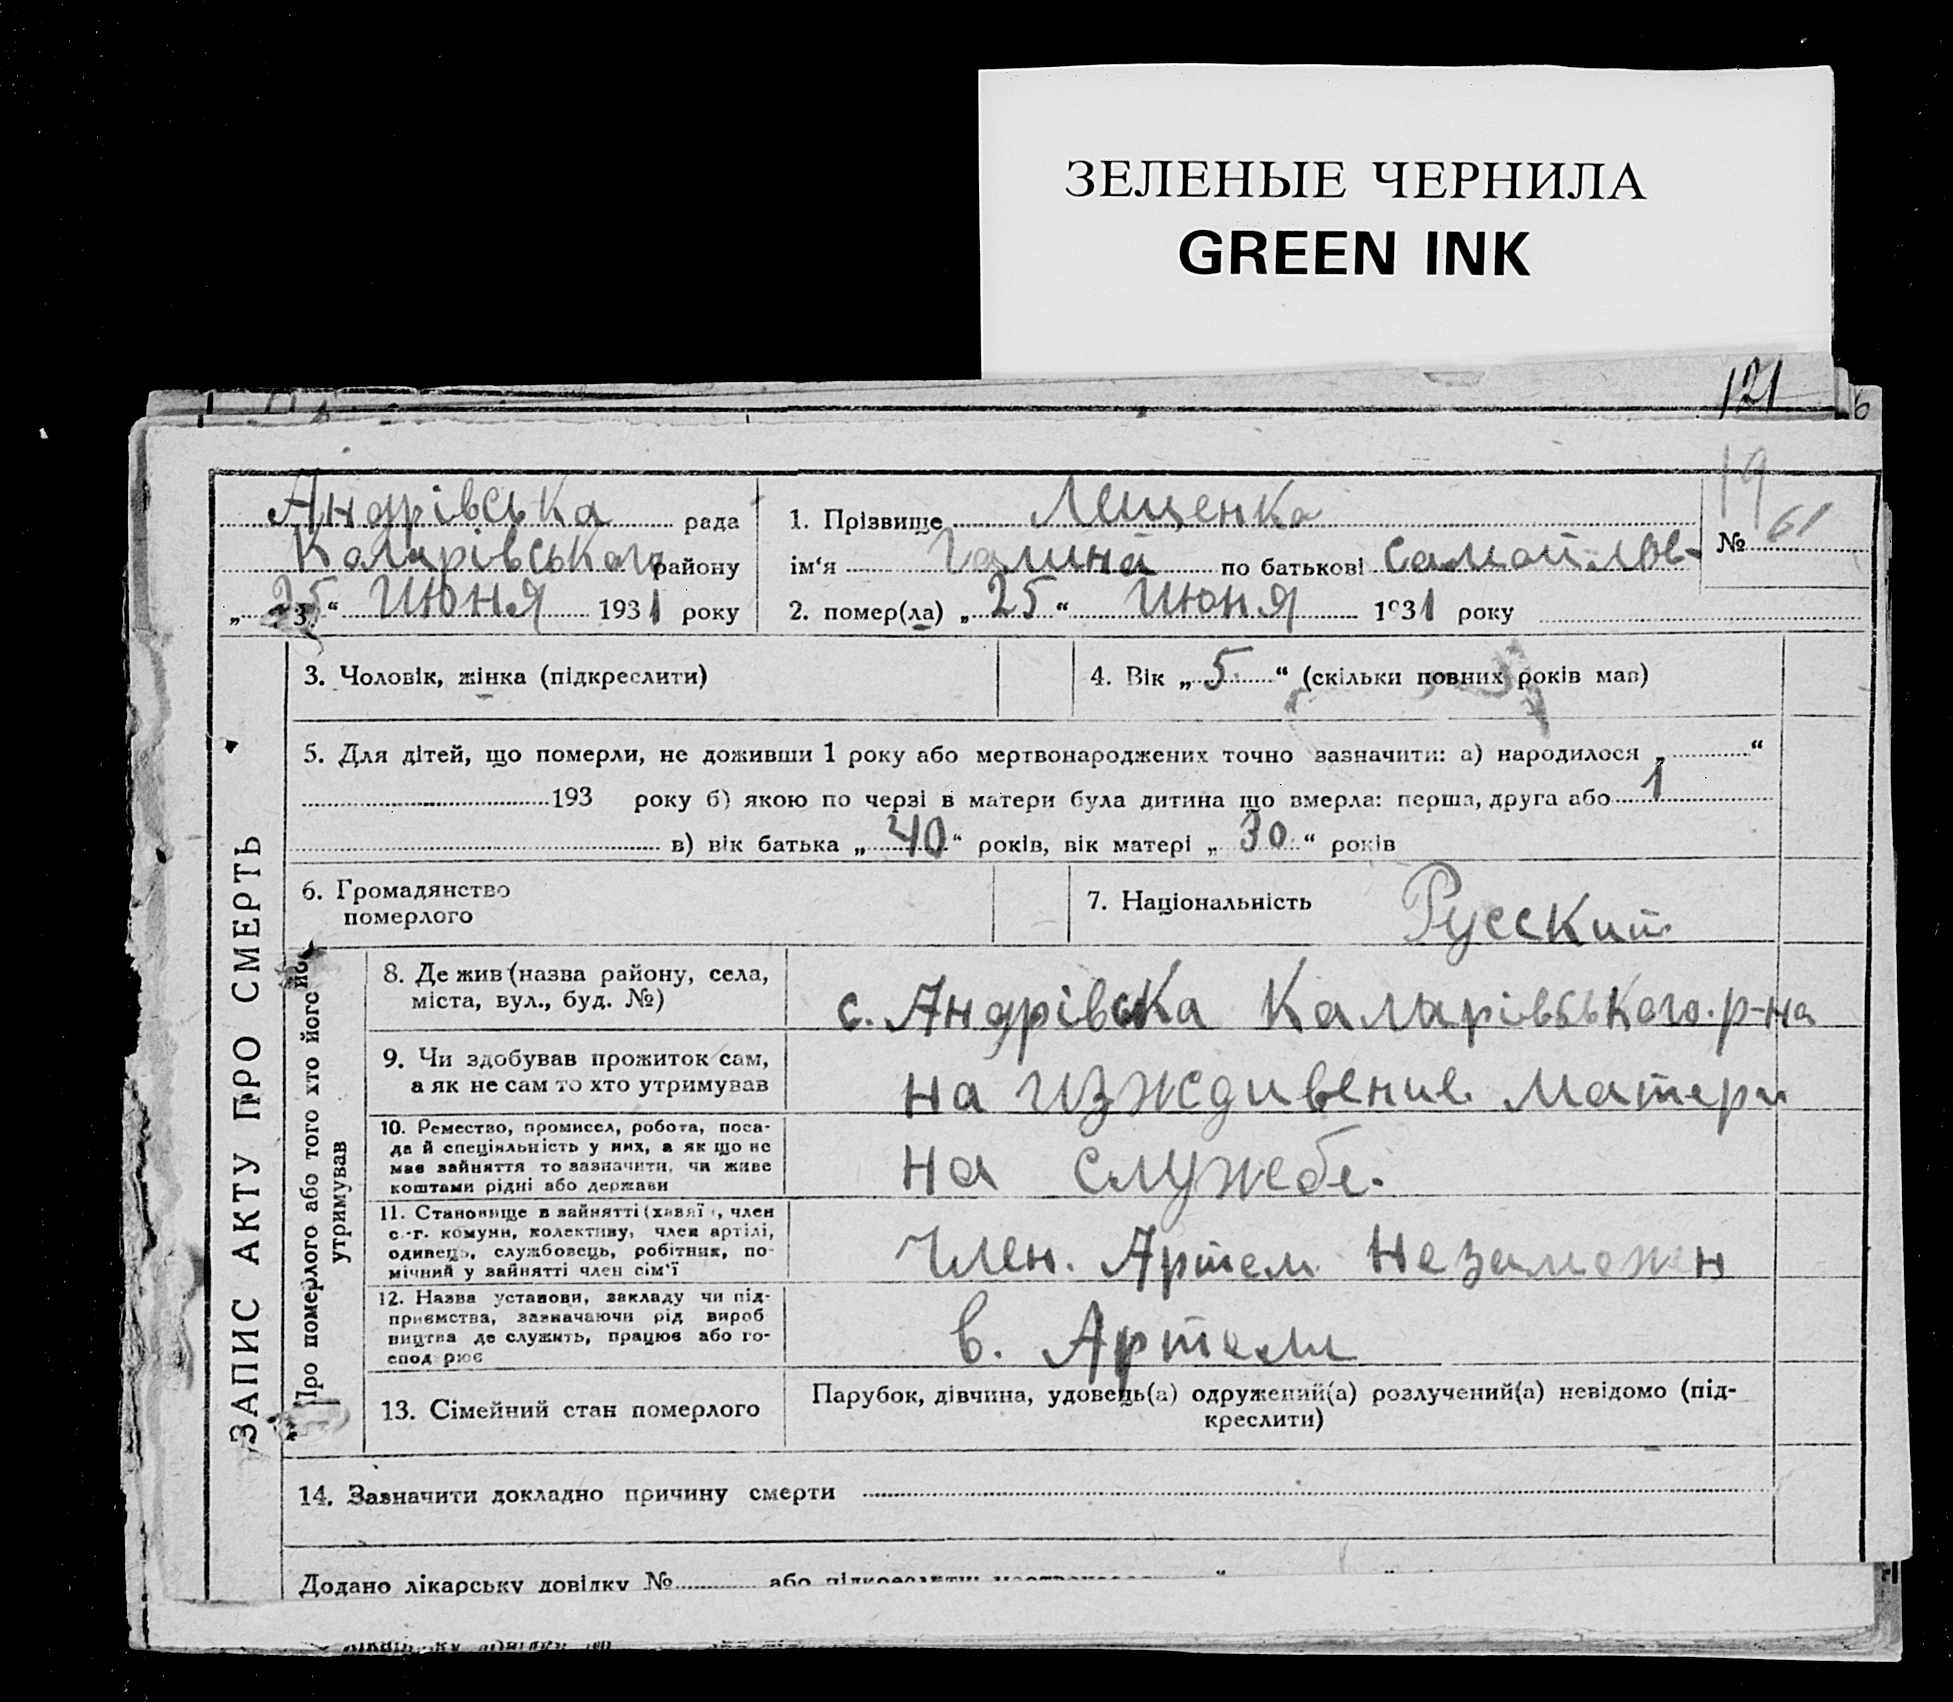 ЗЕЛЕНЫЕ ЧЕРНИЛА
GREEN INK
121
6
19
Андрівська рада
Коларівського району
„25“ Июня 1931 року
1. Прізвище Лещенко
ім‘я Галина по батькові Самойлов-
2. помер(ла) „25“ Июня 1931 року
№ 61
ЗАПИС АКТУ ПРО СМЕРТЬ
3. Чоловік, жінка (підкреслити)
4. Вік „5“ (скільки повних років мав)
5. Для дітей, що померли, не доживши 1 року або мертвонароджених точно зазначити: а) народилося „ “
193 року б) якою по черзі в матери була дитина що вмерла: перша, друга або 1
в) вік батька „40“ років, вік матері „30“ років
6. Громадянство
померлого
7. Національність Русский
Про померлого або того хто його
утримував
8. Де жив (назва району, села,
міста, вул., буд. №)
с. Андрівка Коларівського р-на
9. Чи здобував прожиток сам,
а як не сам то хто утримував
на изждивение матери
10. Ремество, промисел, робота, поса-
да й спеціяльність у них, а як що не
має зайняття то зазначити, чи живе
коштами рідні або держави
на службе.
11. Становище в зайнятті (хазяї , член
с.-г. комуни, колективу, член артілі,
одинець, службовець, робітник, по-
мічний у зайнятті член сім‘ї
Член. Артели Незаможн
12. Назва установи, закладу чи під-
приємства, зазначаючи рід вироб
ництва де служить, працює або го-
сподарює
в. Артели
13. Сімейний стан померлого
Парубок, дівчина, удовець(а) одружений(а) розлучений(а) невідомо (під-
креслити)
14. Зазначити докладно причину смерти
Додано лікарську довідку № або